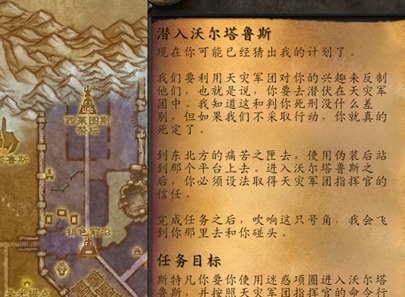 西莱图斯
祭坛
塔鲁斯
银色前沿
潜入沃尔塔鲁斯
现在你可能已经猜出我的计划了。
我们要利用天灾军团对你的兴趣来反制
他们，也就是说，你要去潜伏在天灾军
团中。我知道这和判你死刑没什么差
别，但如果我们不采取行动，你就真的
死定了。
到东北方的痛苦之匣去，使用伪装后站
到那个平台上去。进入沃尔塔鲁斯之
后，你必须设法取得天灾军团指挥官的
信任。
完成任务之后，吹响这只号角，我会飞
到你那里去和你碰头。
任务目标
斯特凡你要你使用迷惑项圈进入沃尔塔
鲁斯，并按照天灾军团指挥官的命令行